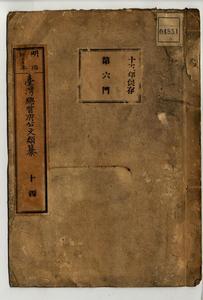 04851
十五年保存
第六門
明治
臺灣總督府公文類纂
十四